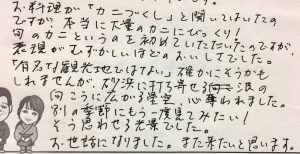 お料理が「カニづくし」と聞いてはいたの
ですが、本当に大量のカニにびっくり!
旬のカニというのを初めていただいたのですが、
表現がむずかしいほどのおいしでした。
「有名な観光地ではない」確かにそうかも
しれませんが、砂浜に打ち寄せる波の
向こうに広がる雪空、心奪われました。
別の季節にもう一度見てみたい!
そう思わせる光景でした。
お世話になりました。また来たいと思います。